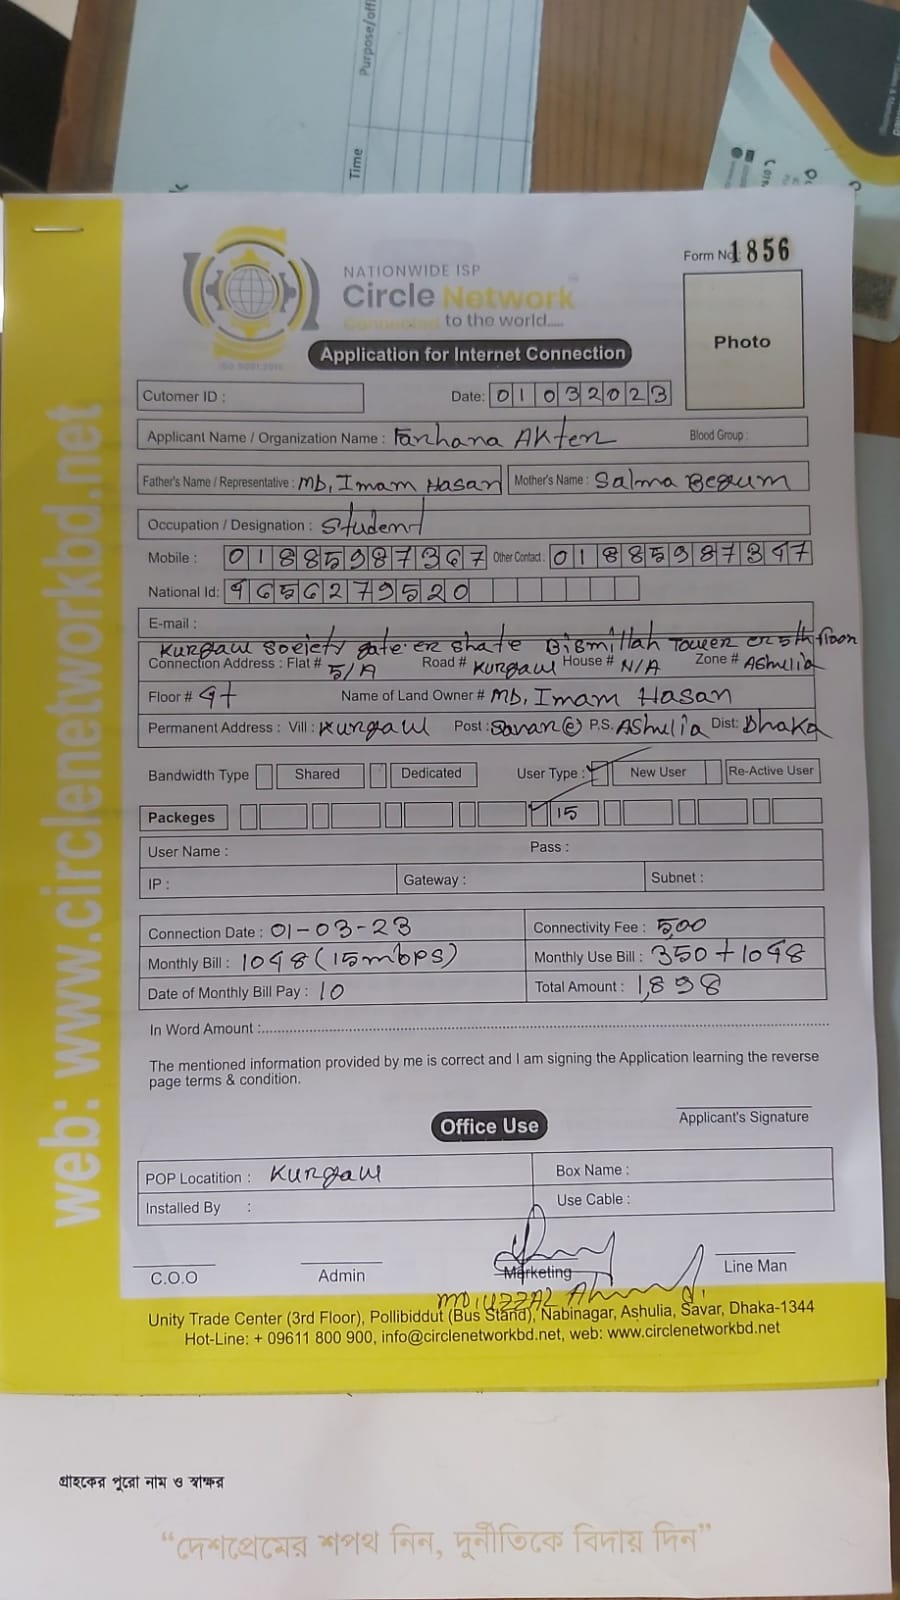 Purpose/offi
Time
Form No: 1856
NATIONWIDE ISP
Circle Network
Connected to the world.....
ISO 9001:2015
Application for Internet Connection
Photo
Cutomer ID :
Date: 01032023
Applicant Name / Organization Name : Farhana AKter
Blood Group :
Father's Name / Representative : MD, Imam Hasan
Mother's Name : Salma Begum
Occupation / Designation : Student
Mobile : 01885987367 Other Contact : 01885987347
National Id: 4656279520
E-mail :
Kurgaw Society gate er shate Bismillah Tower er 5th floor
Connection Address : Flat # 5/A Road # Kurgaw House # N/A Zone # AShulia
Floor # 4t Name of Land Owner # MD, Imam Hasan
Permanent Address : Vill : Kurgaw Post : Savar P.S. AShulia Dist: Dhaka
Bandwidth Type Shared Dedicated User Type : New User Re-Active User
Packeges 15
User Name : Pass :
IP : Gateway : Subnet :
Connection Date : 01-03-23 Connectivity Fee : 500
Monthly Bill : 1048 (15mbps) Monthly Use Bill : 350 + 1048
Date of Monthly Bill Pay : 10 Total Amount : 1,898
In Word Amount :
The mentioned information provided by me is correct and I am signing the Application learning the reverse
page terms & condition.
Applicant's Signature
Office Use
POP Locatition : Kurgaw Box Name :
Installed By : Use Cable :
C.O.O Admin Marketing Line Man
Unity Trade Center (3rd Floor), Pollibiddut (Bus Stand), Nabinagar, Ashulia, Savar, Dhaka-1344
Hot-Line: + 09611 800 900, info@circlenetworkbd.net, web: www.circlenetworkbd.net
web: www.circlenetworkbd.net
গ্রাহকের পুরো নাম ও স্বাক্ষর
“দেশপ্রেমের শপথ নিন, দুর্নীতিকে বিদায় দিন”